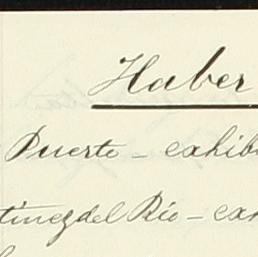 Haber
Puerto - exhib
tinez del Rio - exh